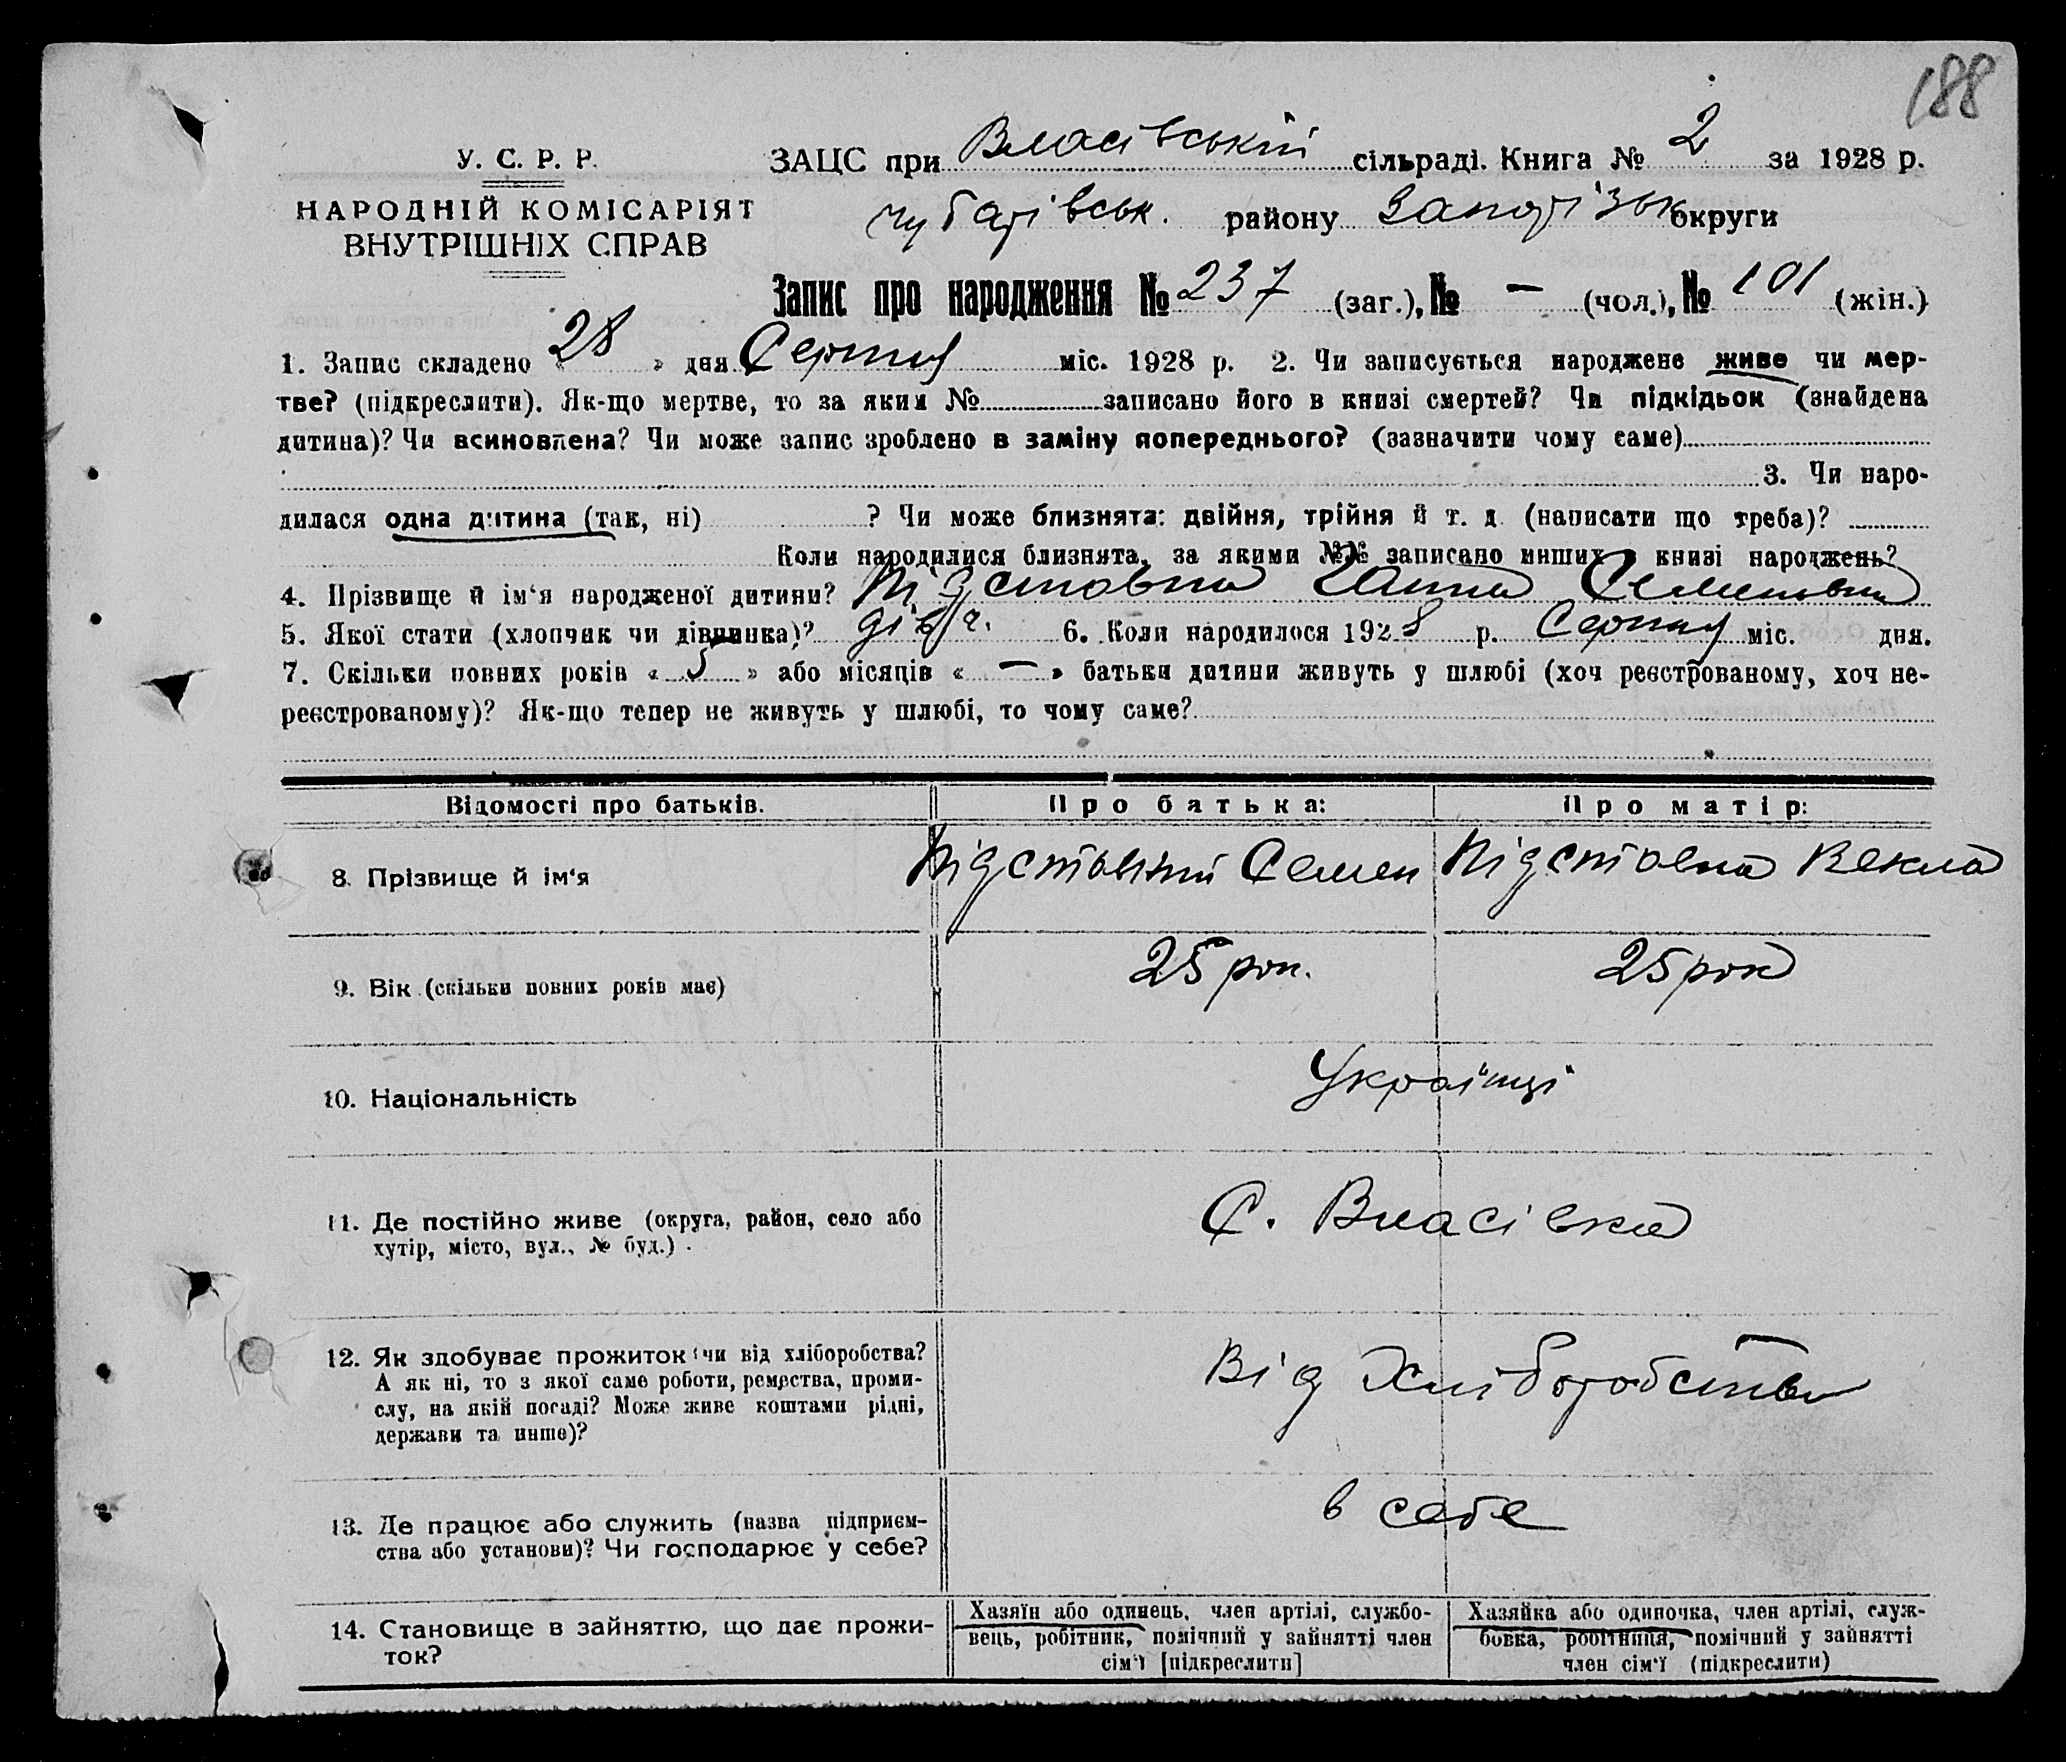 188
У. С. Р. Р.
НАРОДНІЙ КОМІСАРІЯТ
ВНУТРІШНІХ СПРАВ
ЗАЦС при Власівській сільраді. Книга № 2 за 1928 р.
Чубарівськ. району Запорізьк округи
Запис про народження № 237 (заг.), № — (чол.), № 101 (жін.)
1. Запис складено « 28 » дня Серпня міс. 1928 р. 2. Чи записується народжене живе чи мер-
тве? (підкреслити). Як-що мертве, то за яким № записано його в книзі смертей? Чи підкідьок (знайдена
дитина)? Чи всиновлена? Чи може запис зроблено в заміну попереднього? (зазначити чому саме)
3. Чи наро-
дилася одна дитина (так, ні) ? Чи може близнята: двійня, трійня й т. д. (написати що треба)?
Коли народилися близнята, за якими №№ записано инших в книзі народжень?
4. Прізвище й ім'я народженої дитини? Підставна Ганна Семеновна
5. Якої стати (хлопчик чи дівчинка)? дівч. 6. Коли народилося 1928 р. Серпня міс. дня.
7. Скільки повних років « 5 » або місяців « — » батьки дитини живуть у шлюбі (хоч реєстрованому, хоч не-
реєстрованому)? Як-що тепер не живуть у шлюбі, то чому саме?
Відомості про батьків. Про батька: Про матір:
8. Прізвище й ім'я Підставний Семен Підставна Векла
9. Вік (скільки повних років має) 25 рок. 25 рок
10. Національність Українці
11. Де постійно живе (округа, район, село або
хутір, місто, вул., № буд.)
С. Власівка
12. Як здобуває прожиток (чи від хліборобства?
А як ні, то з якої саме роботи, ремества, проми-
слу, на якій посаді? Може живе коштами рідні,
держави та инше)?
Від Хліборобства
13. Де працює або служить (назва підприєм-
ства або установи)? Чи господарює у себе?
в себе
14. Становище в зайняттю, що дає прожи-
ток?
Хазяїн або одинець, член артілі, службо-
вець, робітник, помічний у зайнятті член
сім'ї [підкреслити]
Хазяйка або одиночка, член артілі, служ-
бовка, робітниця, помічний у зайнятті
член сім'ї (підкреслити)